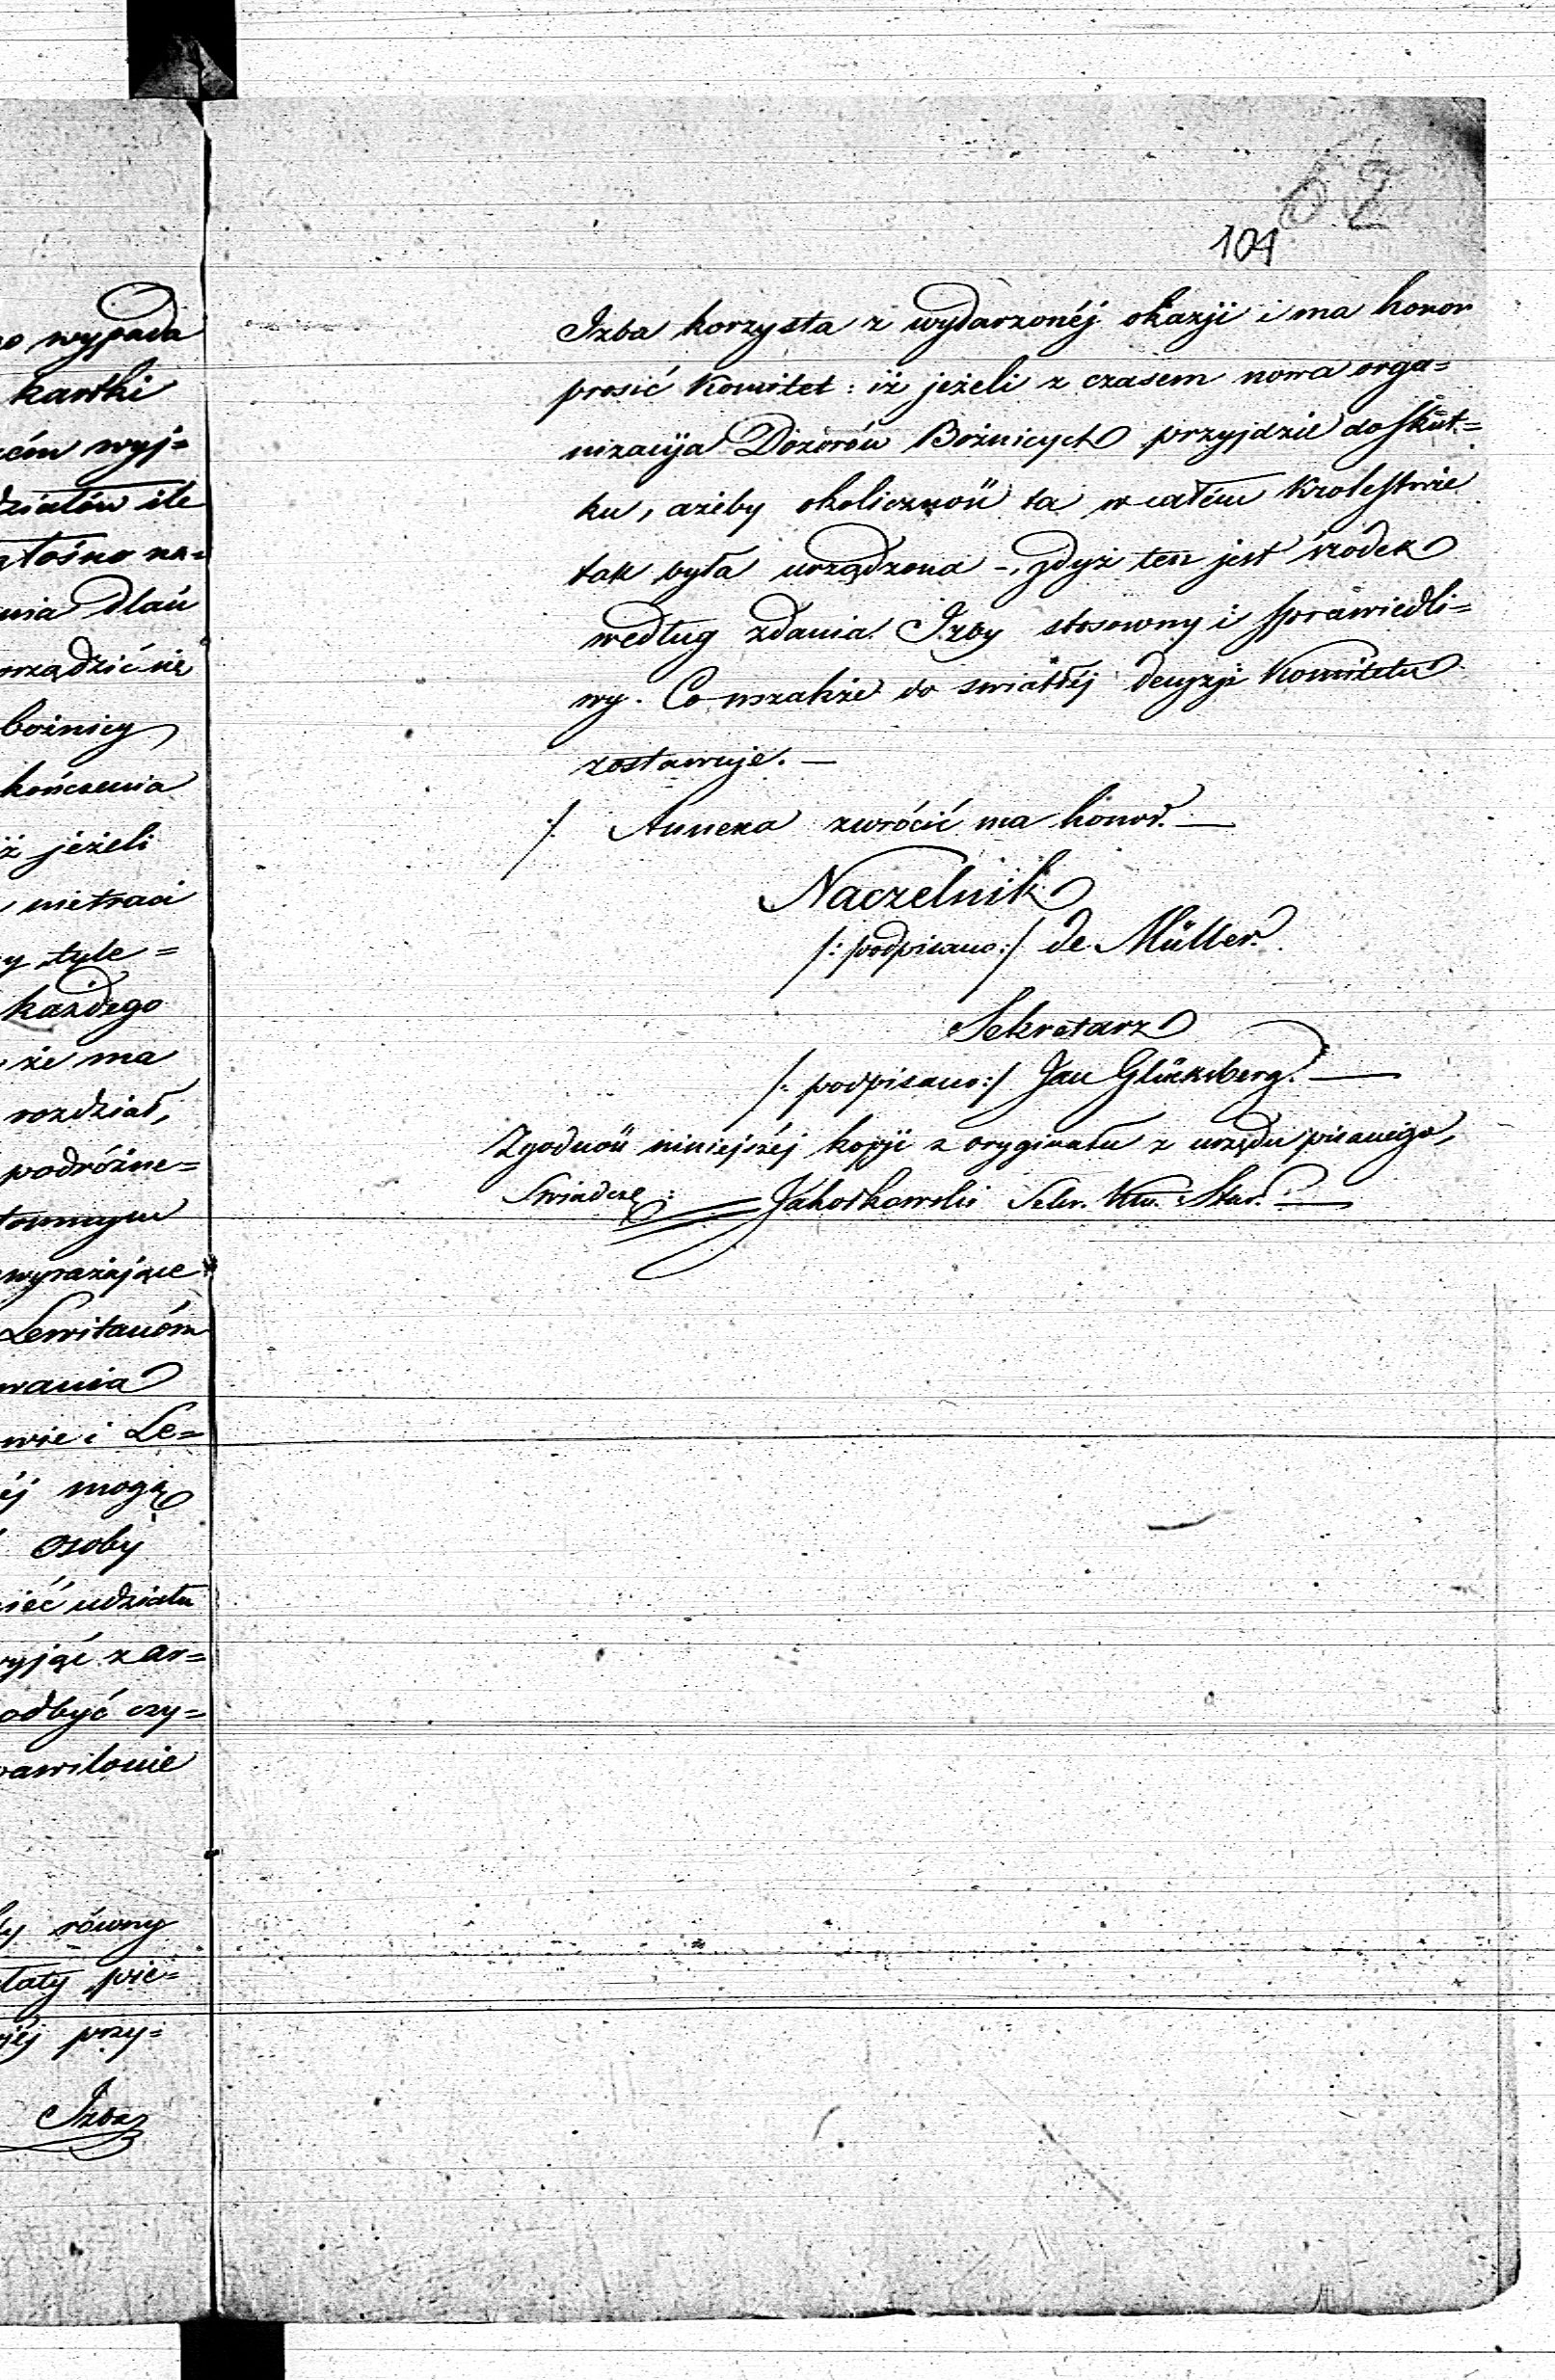 62
101
Izba korzysta z wydarzonéj okazji i ma honor
prosić Komitet: iż jeżeli z czasem nowa orga=
nizacyja Dozorów Bożniczych przyjdzie do skut=
ku, ażeby okoliczność ta w całém Krolestwie
tak była urządzona -, gdyż ten jest środek
według zdania Izby stosowny i sprawiedli=
wy. Co wszakże do swiatłéj decyzji Komitetu
zostawuje. —
·/. Annexa zwrócić ma honor. —
Naczelnik
/: podpisano :/ de Müller.
Sekretarz
/: podpisano :/ Jan Glüksberg. —
Zgodność niniejszéj kopji z oryginału z urzędu pisanego,
Swiadczę: Jakotkowski Sekr. Star. —
wypada
kartki
wyj=
działów ile
na=
nia dlań
orządzić się
bożnicy
kończenia
iż jeżeli
nietraci
y tyle=
każdego
że ma
rozdział,
podróżne=
townym
wyrażające
Lewitanóm
wania
wie i Le=
éj mogą
osoby
mieć udziału
wyjąć z ar=
odbyć czy=
rawilonie
y równy
łaty pie=
przy=
Izba